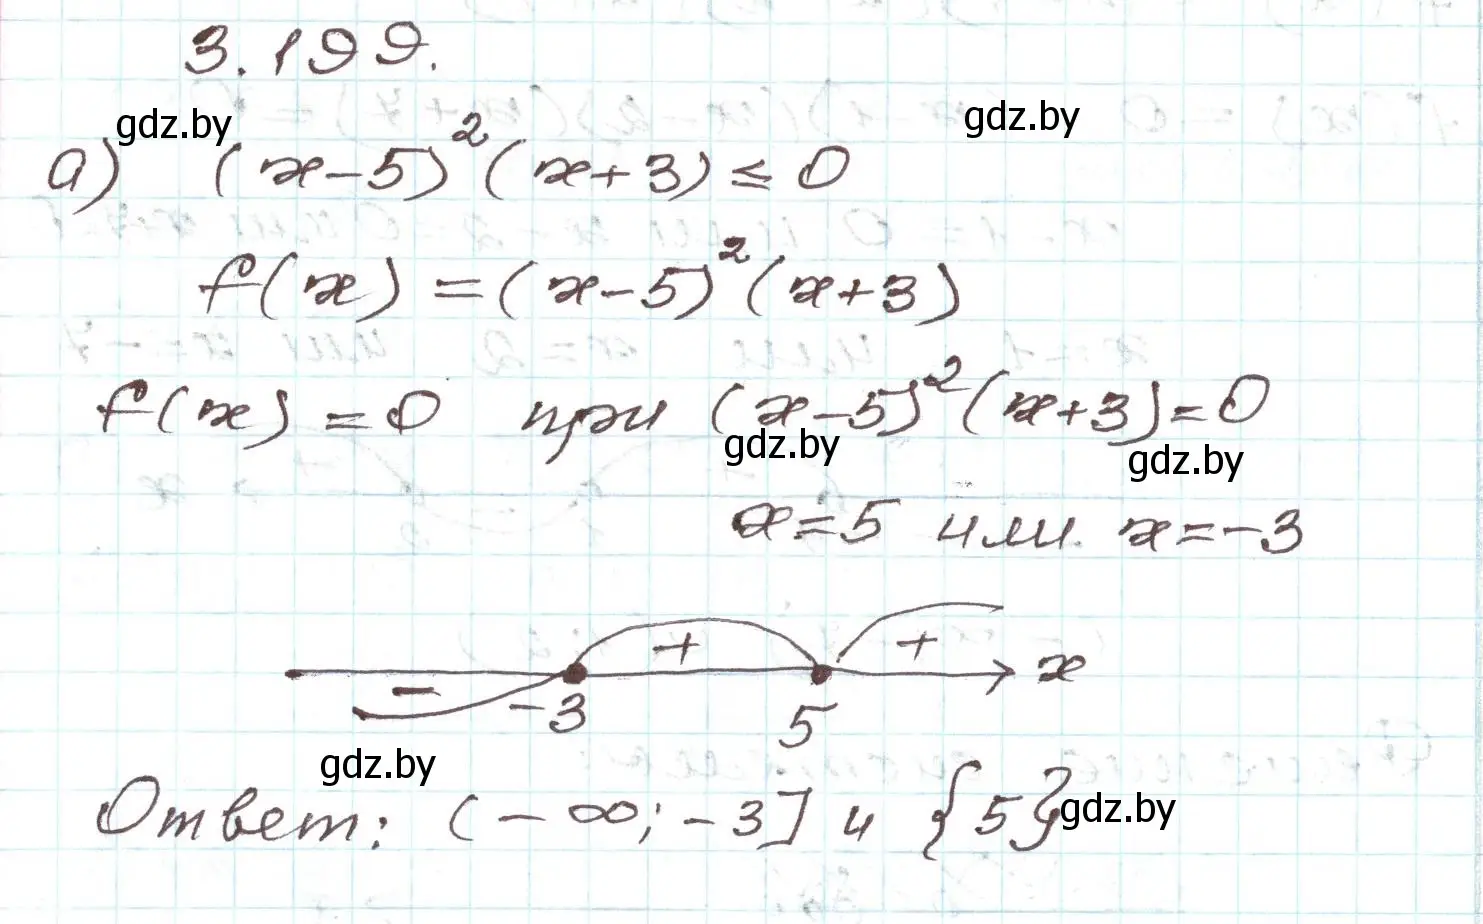 3.199.
gdz.by gdz.by
а) (x-5)²(x+3) ≤ 0
f(x) = (x-5)²(x+3)
f(x) = 0 при (x-5)²(x+3) = 0
gdz.by gdz.by
x = 5 или x = -3
- + + x
-3 5
gdz.by
Ответ: (-∞; -3] и {5}
gdz.by